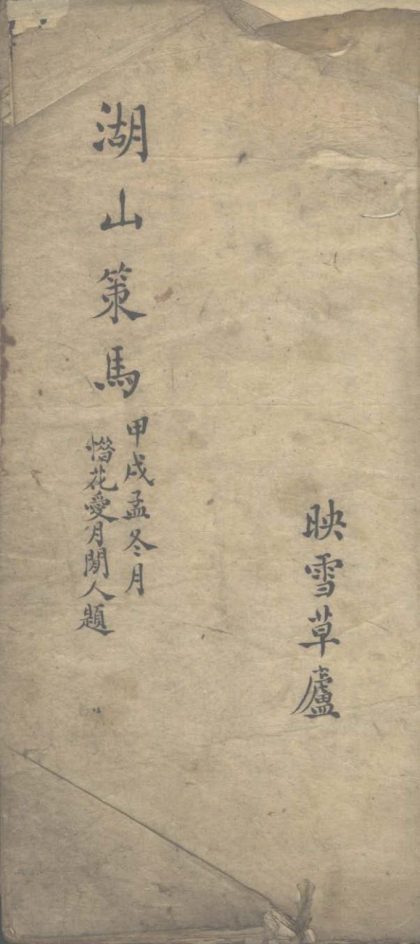 映雪草廬
湖山策馬
甲戌孟冬月
惜花愛月閒人題